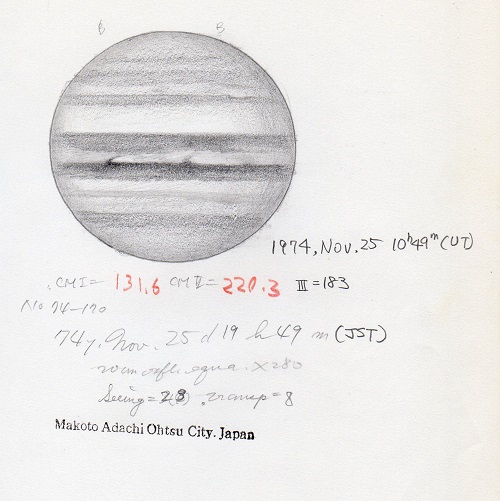 B B
1974, Nov. 25 10h49m (UT)
CM I= 131.6 CM II= 220.3 III=183
No 74-170
74y. Nov. 25 d 19 h 49 m (JST)
equa. ×280
Seeing= transp=8
Makoto Adachi Ohtsu City. Japan